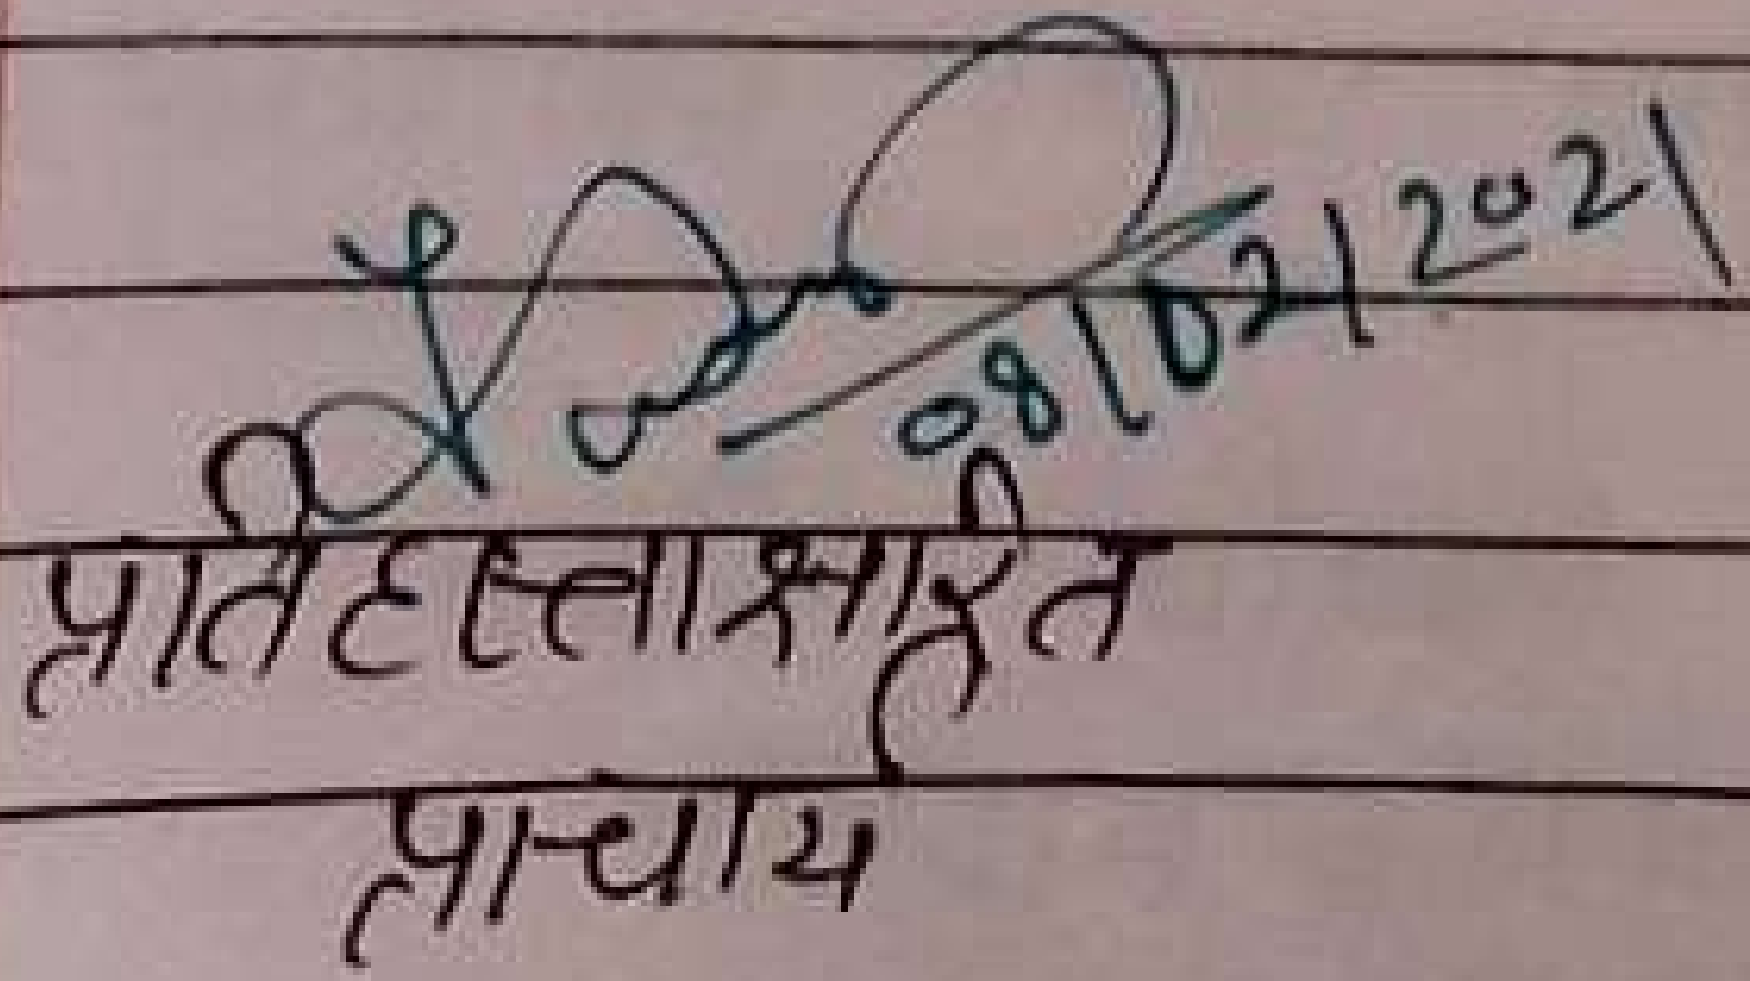 08/02/2021
प्रति हस्ताक्षरित
प्राचार्य